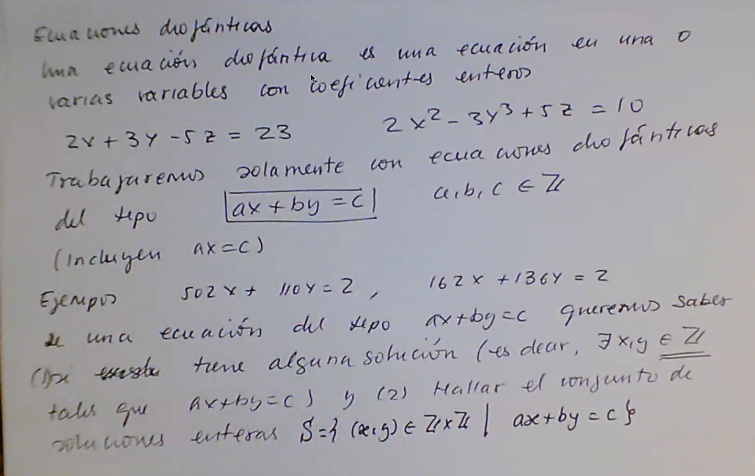 Ecuaciones diofánticas
Una ecuación diofántica es una ecuación en una o
varias variables con coeficientes enteros
2x + 3y - 5z = 23    2x² - 3y³ + 5z = 10
Trabajaremos solamente con ecuaciones diofánticas
del tipo ax + by = c    a, b, c ∈ ℤ
(incluyen ax = c)
Ejempos 502x + 110y = 2, 162x + 136y = 2
De una ecuación del tipo ax+by=c queremos saber
(1) si tiene alguna solución (es decir, ∃ x,y ∈ ℤ
tales que ax+by=c) y (2) Hallar el conjunto de
soluciones enteras S={(x,y) ∈ ℤxℤ | ax+by=c}